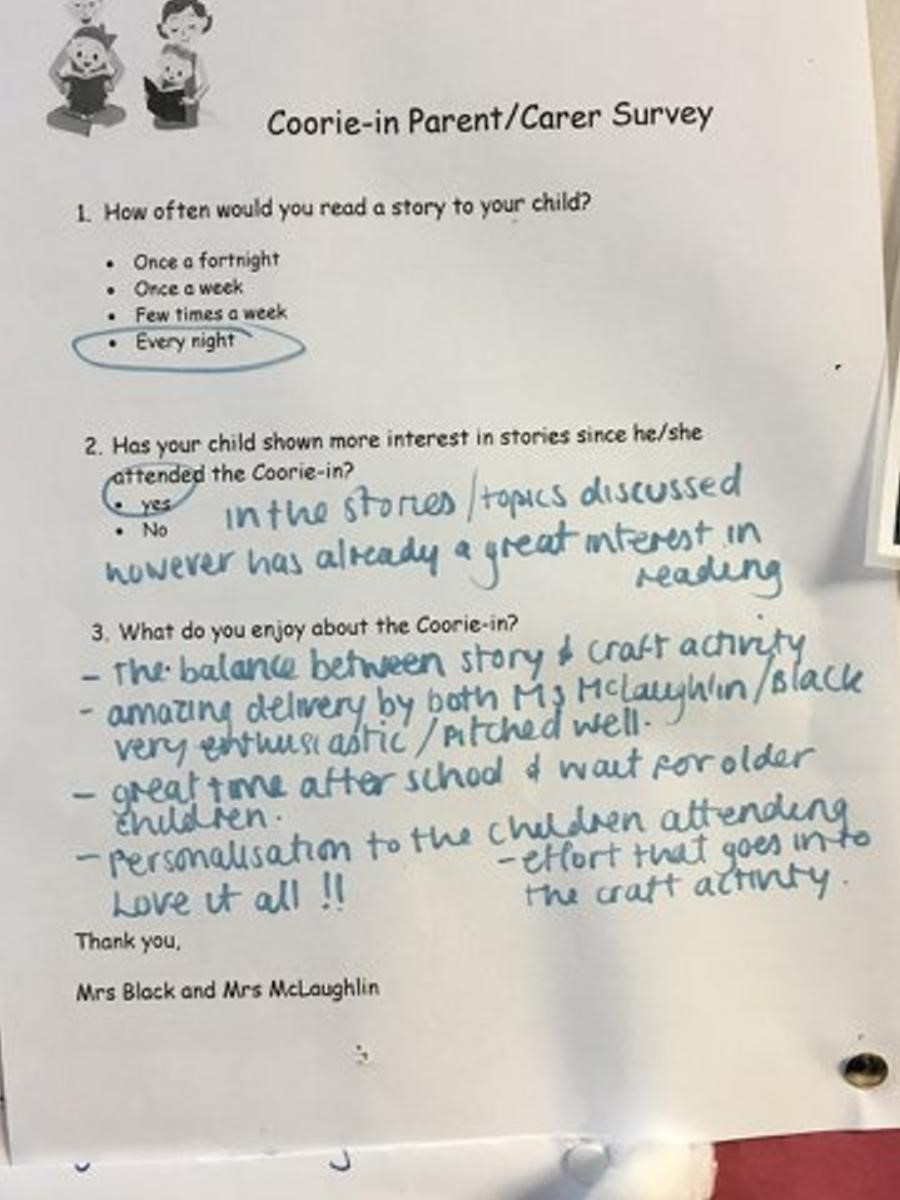 Coorie-in Parent/Carer Survey
1. How often would you read a story to your child?
• Once a fortnight
• Once a week
• Few times a week
• Every night
2. Has your child shown more interest in stories since he/she
attended the Coorie-in?
• yes
• No
in the stories/topics discussed
however has already a great interest in
reading
3. What do you enjoy about the Coorie-in?
- The balance between story & craft activity
- amazing delivery by both Ms McLaughlin/Black
very enthusiastic/pitched well.
- great time after school & wait for older
children.
- personalisation to the children attending
- effort that goes into
the craft activity.
Love it all !!
Thank you,
Mrs Black and Mrs McLaughlin